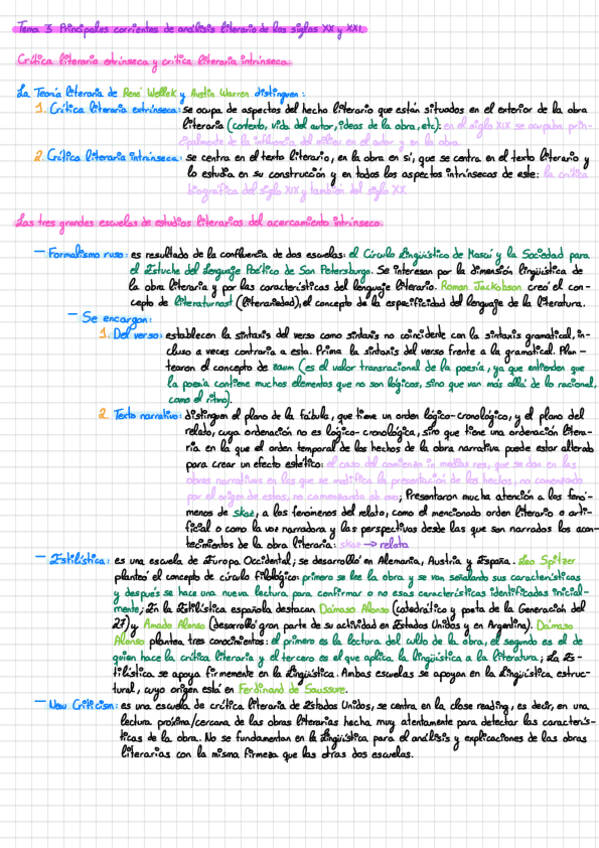 Tema 3. Principales corrientes de análisis literario de los siglos XX y XXI.
Crítica literaria extrínseca y crítica literaria intrínseca.
La Teoría literaria de René Wellek y Austin Warren distinguen:
1. Crítica literaria extrínseca: se ocupa de aspectos del hecho literario que están situados en el exterior de la obra
literaria (contexto, vida del autor, ideas de la obra, etc): en el siglo XIX se ocupaba prin-
cipalmente de la influencia del militar en el autor y en la obra.
2. Crítica literaria intrínseca: se centra en el texto literario, en la obra en sí, que se centra en el texto literario y
lo estudia en su construcción y en todos los aspectos intrínsecos de este: la crítica
biográfica del siglo XIX y también del siglo XX
Las tres grandes escuelas de estudios literarios del acercamiento intrínseco.
— Formalismo ruso: es resultado de la confluencia de dos escuelas: el Círculo Lingüístico de Moscú y la Sociedad para
el Estuche del Lenguaje Poético de San Petersburgo. Se interesan por la dimensión lingüística de
la obra literaria y por las características del lenguaje literario. Roman Jackobson creó el con-
cepto de literaturnost (literariedad), el concepto de la especificidad del lenguaje de la literatura.
— Se encargan:
1. Del verso: establecen la sintaxis del verso como sintaxis no coincidente con la sintaxis gramatical, in-
cluso a veces contraria a esta. Prima la sintaxis del verso frente a la gramatical. Plan-
tearon el concepto de zaum (es el valor transracional de la poesía, ya que entienden que
la poesía contiene muchos elementos que no son lógicos, sino que van más allá de lo racional,
como el ritmo).
2. Texto narrativo: distinguen el plano de la fábula, que tiene un orden lógico-cronológico, y el plano del
relato, cuya ordenación no es lógico-cronológica, sino que tiene una ordenación litera-
ria en la que el orden temporal de los hechos de la obra narrativa puede estar alterado
para crear un efecto estético: el caso del comienzo in medias res, que se dan en las
obras narrativas en las que se modifica la presentación de los hechos, no comenzado
por el origen de estas, no comenzando ab ovo; Presentaron mucha atención a los fenó-
menos de skaz, a los fenómenos del relato, como el mencionado orden literario o arti-
ficial o como la voz narradora y las perspectivas desde las que son narrados los acon-
tecimientos de la obra literaria: skaz → relato
— Estilística: es una escuela de Europa Occidental; se desarrolló en Alemania, Austria y España. Leo Spitzer
planteó el concepto de círculo filológico: primero se lee la obra y se van señalando sus características
y después se hace una nueva lectura para confirmar o no esas características identificadas inicial-
mente; En la Estilística española destacan Dámaso Alonso (catedrático y poeta de la Generación del
27) y Amado Alonso (desarrolló gran parte de su actividad en Estados Unidos y en Argentina). Dámaso
Alonso plantea tres conocimientos: el primero es la lectura del culto de la obra, el segundo es el de
quien hace la crítica literaria y el tercero es el que aplica la lingüística a la literatura; La Es-
tilística se apoya firmemente en la Lingüística. Ambas escuelas se apoyan en la Lingüística estruc-
tural, cuyo origen está en Ferdinand de Saussure.
— New Criticism: es una escuela de crítica literaria de Estados Unidos, se centra en la close reading, es decir, en una
lectura próxima/cercana de las obras literarias hecha muy atentamente para detectar las caracterís-
ticas de la obra. No se fundamentan en la Lingüística para el análisis y explicaciones de las obras
literarias con la misma firmeza que las otras dos escuelas.